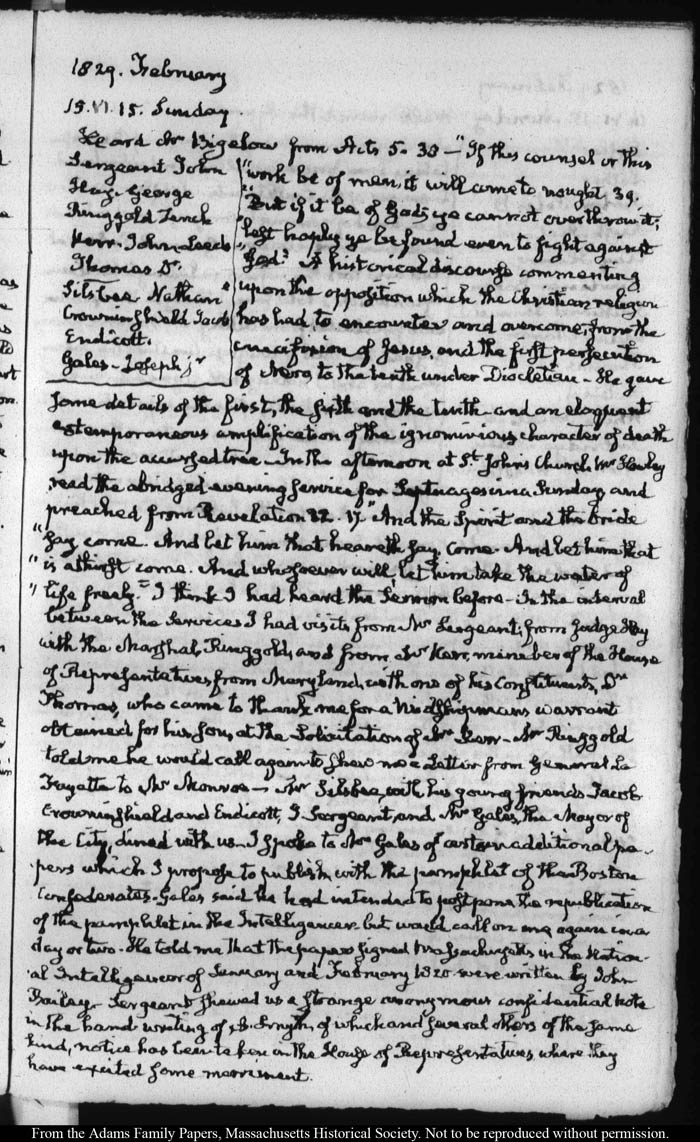 1829. February
15. VI. 15. Sunday
Heard Mr Bigelow from Acts 5. 38 — "If this counsel or this
Sergeant John
Hay. George
Ringgold Tench
Kerr. John Leeds
Thomas Dr.
Silsbee Nathanl
Crowninshield Jacob
Endicott.
Gales. Joseph jr
"work be of men, it will come to nought, 39.
"But if it be of God, ye cannot overthrow it;
"lest haply ye be found even to fight against
"God." A historical discourse commenting
upon the opposition which the Christian religion
has had to encounter and overcome, from the
crucifixion of Jesus, and the first persecution
of Nero, to the tenth under Diocletian. He gave
some details of the first, the and the tenth and an eloquent
extemporaneous amplification of the ignominious character of death
upon the accursed tree. In the afternoon at St. John's Church, Mr Hawley
read the abridged evening service for Septuagesima Sunday and
preached from Revelation 22. 17. "And the Spirit and the bride
"say, come. And let him that heareth say, Come. And let him that
"is athirst come. And whosoever will, let him take the water of
"life freely." I think I had heard the Sermon before. In the interval
between the Services I had visits from Mr Sergeant, from Judge Hay
with the Marshal, Ringgold, and from Mr Kerr, member of the House
of Representatives, from Maryland, with one of his Constituents, Dr
Thomas, who came to thank me for a Midshipman's warrant
obtained for his Son, at the Solicitation of Mr Kerr. Mr Ringgold
told me he would call again to shew me a Letter from General La
Fayette to Mr Monroe — Mr Silsbee, with his young friends Jacob
Crowninshield and Endicott, J. Sergeant, and Mr Gales, the Mayor of
the City, dined with us. I spoke to Mr Gales of certain additional pa-
pers which I propose to publish, with the pamphlet of the Boston
Confederates. Gales said he had intended to postpone the republication
of the pamphlet in the Intelligencer but would call on me again in a
day or two. He told me that the papers signed Massachusetts in the Nation-
al Intelligencer of January and February 1820 were written by John
Bailey. Sergeant shewed us a strange anonymous confidential Note
in the hand writing of Smyth, of which and several others of the same
kind, notice has been taken in the House of Representatives, where they
have excited some merriment.
From the Adams Family Papers, Massachusetts Historical Society. Not to be reproduced without permission.